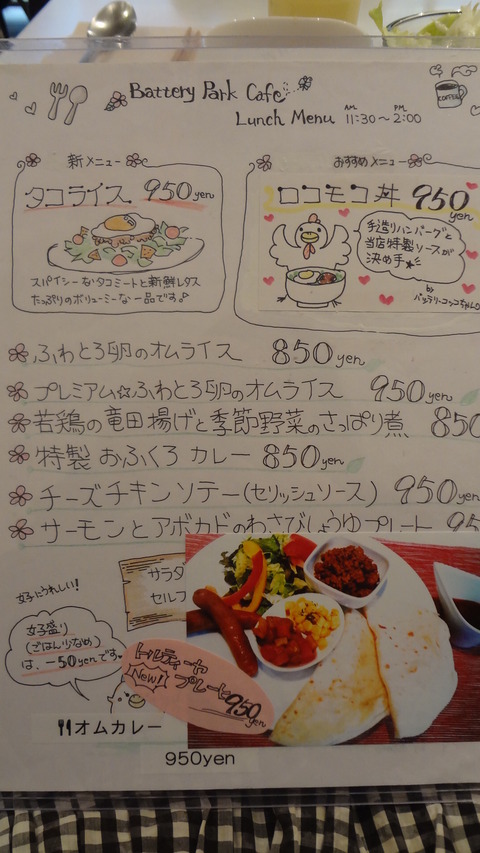 Battery Park Cafe
Lunch Menu AM 11:30~PM 2:00
COFFEE
新メニュー
タコライス 950yen
スパイシーなタコミートと新鮮レタス
たっぷりのボリューミーな一品です。
おすすめメニュー
ロコモコ丼 950yen
手造りハンバーグと
当店特製ソースが
決め手
by
バッテリーコッコちゃん
ふわとろ卵のオムライス 850yen
プレミアム☆ふわとろ卵のオムライス 950yen
若鶏の竜田揚げと季節野菜のさっぱり煮 850
特製 おふくろ カレー 850yen
チーズチキンソテー(セリッシュソース) 950yen
サーモンとアボカドのわさびしょうゆプレート 95
サラダ
セルフ
女子にうれしい!
女子盛り
(ごはん少なめ)
は、-50yenです
トルティーヤ
New! プレート
950yen
オムカレー
950yen